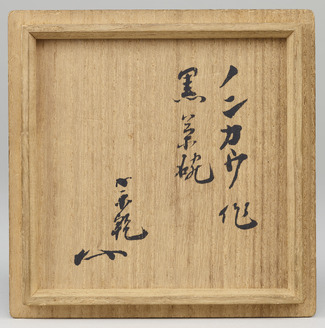 ノンカウ作
黒茶碗
宗乾